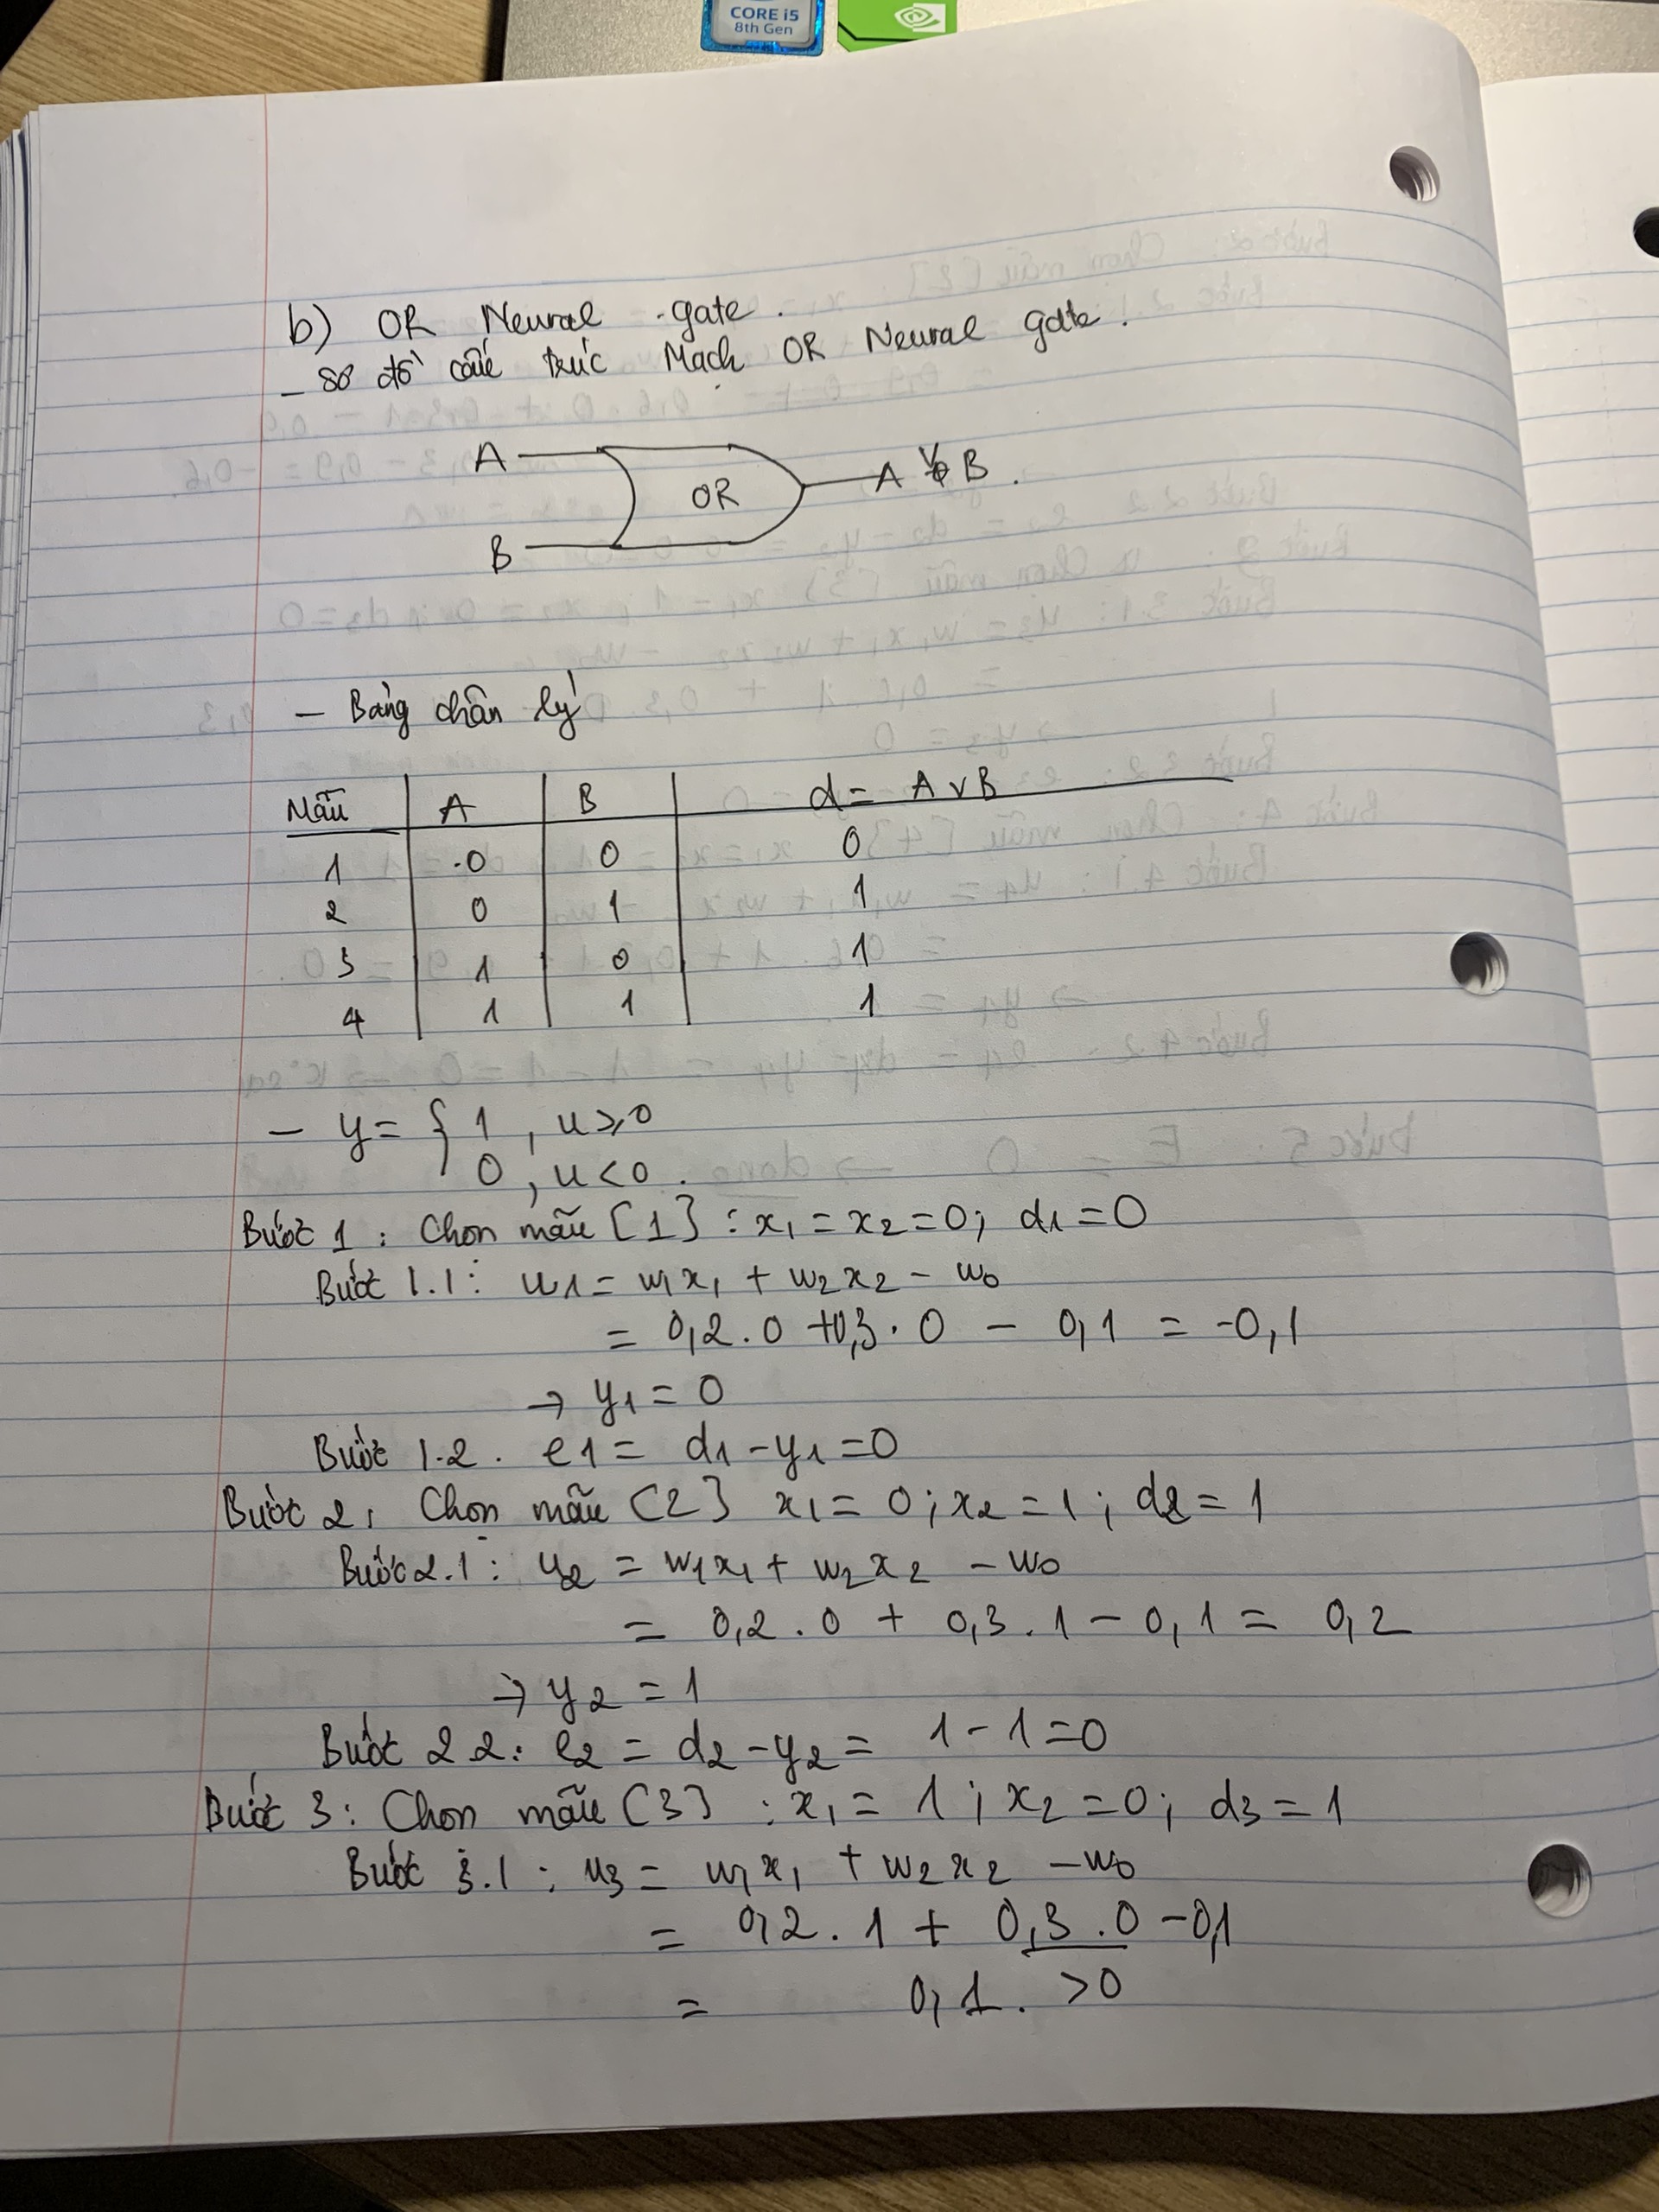 CORE i5
8th Gen
b) OR Neural gate.
- sơ đồ cấu trúc Mạch OR Neural gate.
A
OR
A V B.
B
- Bảng chân lý
Mẫu A B d = A v B
1 0 0 0
2 0 1 1
3 1 0 1
4 1 1 1
- y = { 1 , u ≥ 0
0 , u < 0.
Bước 1 : Chọn mẫu [1] : x1 = x2 = 0; d1 = 0
Bước 1.1 : u1 = w1x1 + w2x2 - w0
= 0,2 . 0 + 0,3 . 0 - 0,1 = -0,1
→ y1 = 0
Bước 1.2. e1 = d1 - y1 = 0
Bước 2: Chọn mẫu [2] x1 = 0; x2 = 1; d2 = 1
Bước 2.1 : u2 = w1x1 + w2x2 - w0
= 0,2 . 0 + 0,3 . 1 - 0,1 = 0,2
→ y2 = 1
Bước 2.2: e2 = d2 - y2 = 1 - 1 = 0
Bước 3 : Chọn mẫu [3] : x1 = 1; x2 = 0; d3 = 1
Bước 3.1 : u3 = w1x1 + w2x2 - w0
= 0,2 . 1 + 0,3 . 0 - 0,1
= 0,1. > 0